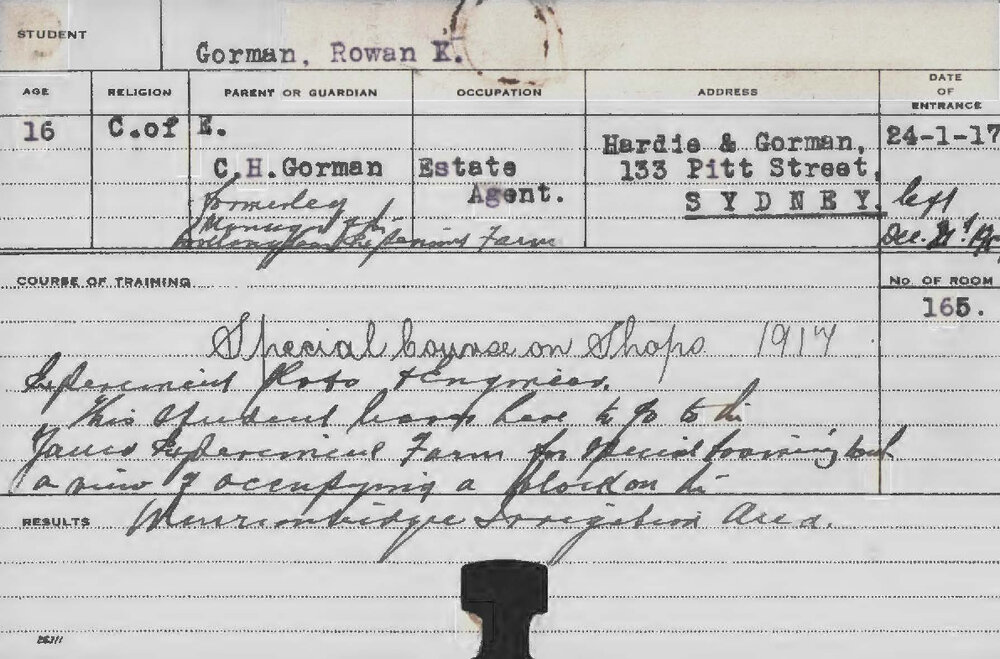 STUDENT
Gorman, Rowan K.
AGE RELIGION PARENT OR GUARDIAN OCCUPATION ADDRESS DATE OF ENTRANCE
16 C.of E. 24-1-17
Hardie & Gorman,
C.H.Gorman Estate 133 Pitt Street,
Agent. SYDNEY. left
Formerley
Manager
Farm Dec.
COURSE OF TRAINING No. OF ROOM
165.
Special Course on Shops 1917
Experiment Plots & Engineer.
This student leaves here to go to the
Yanco Experiment Farm for special training with
a view of occupying a block on the
RESULTS Murrumbidgee Irrigation Area.